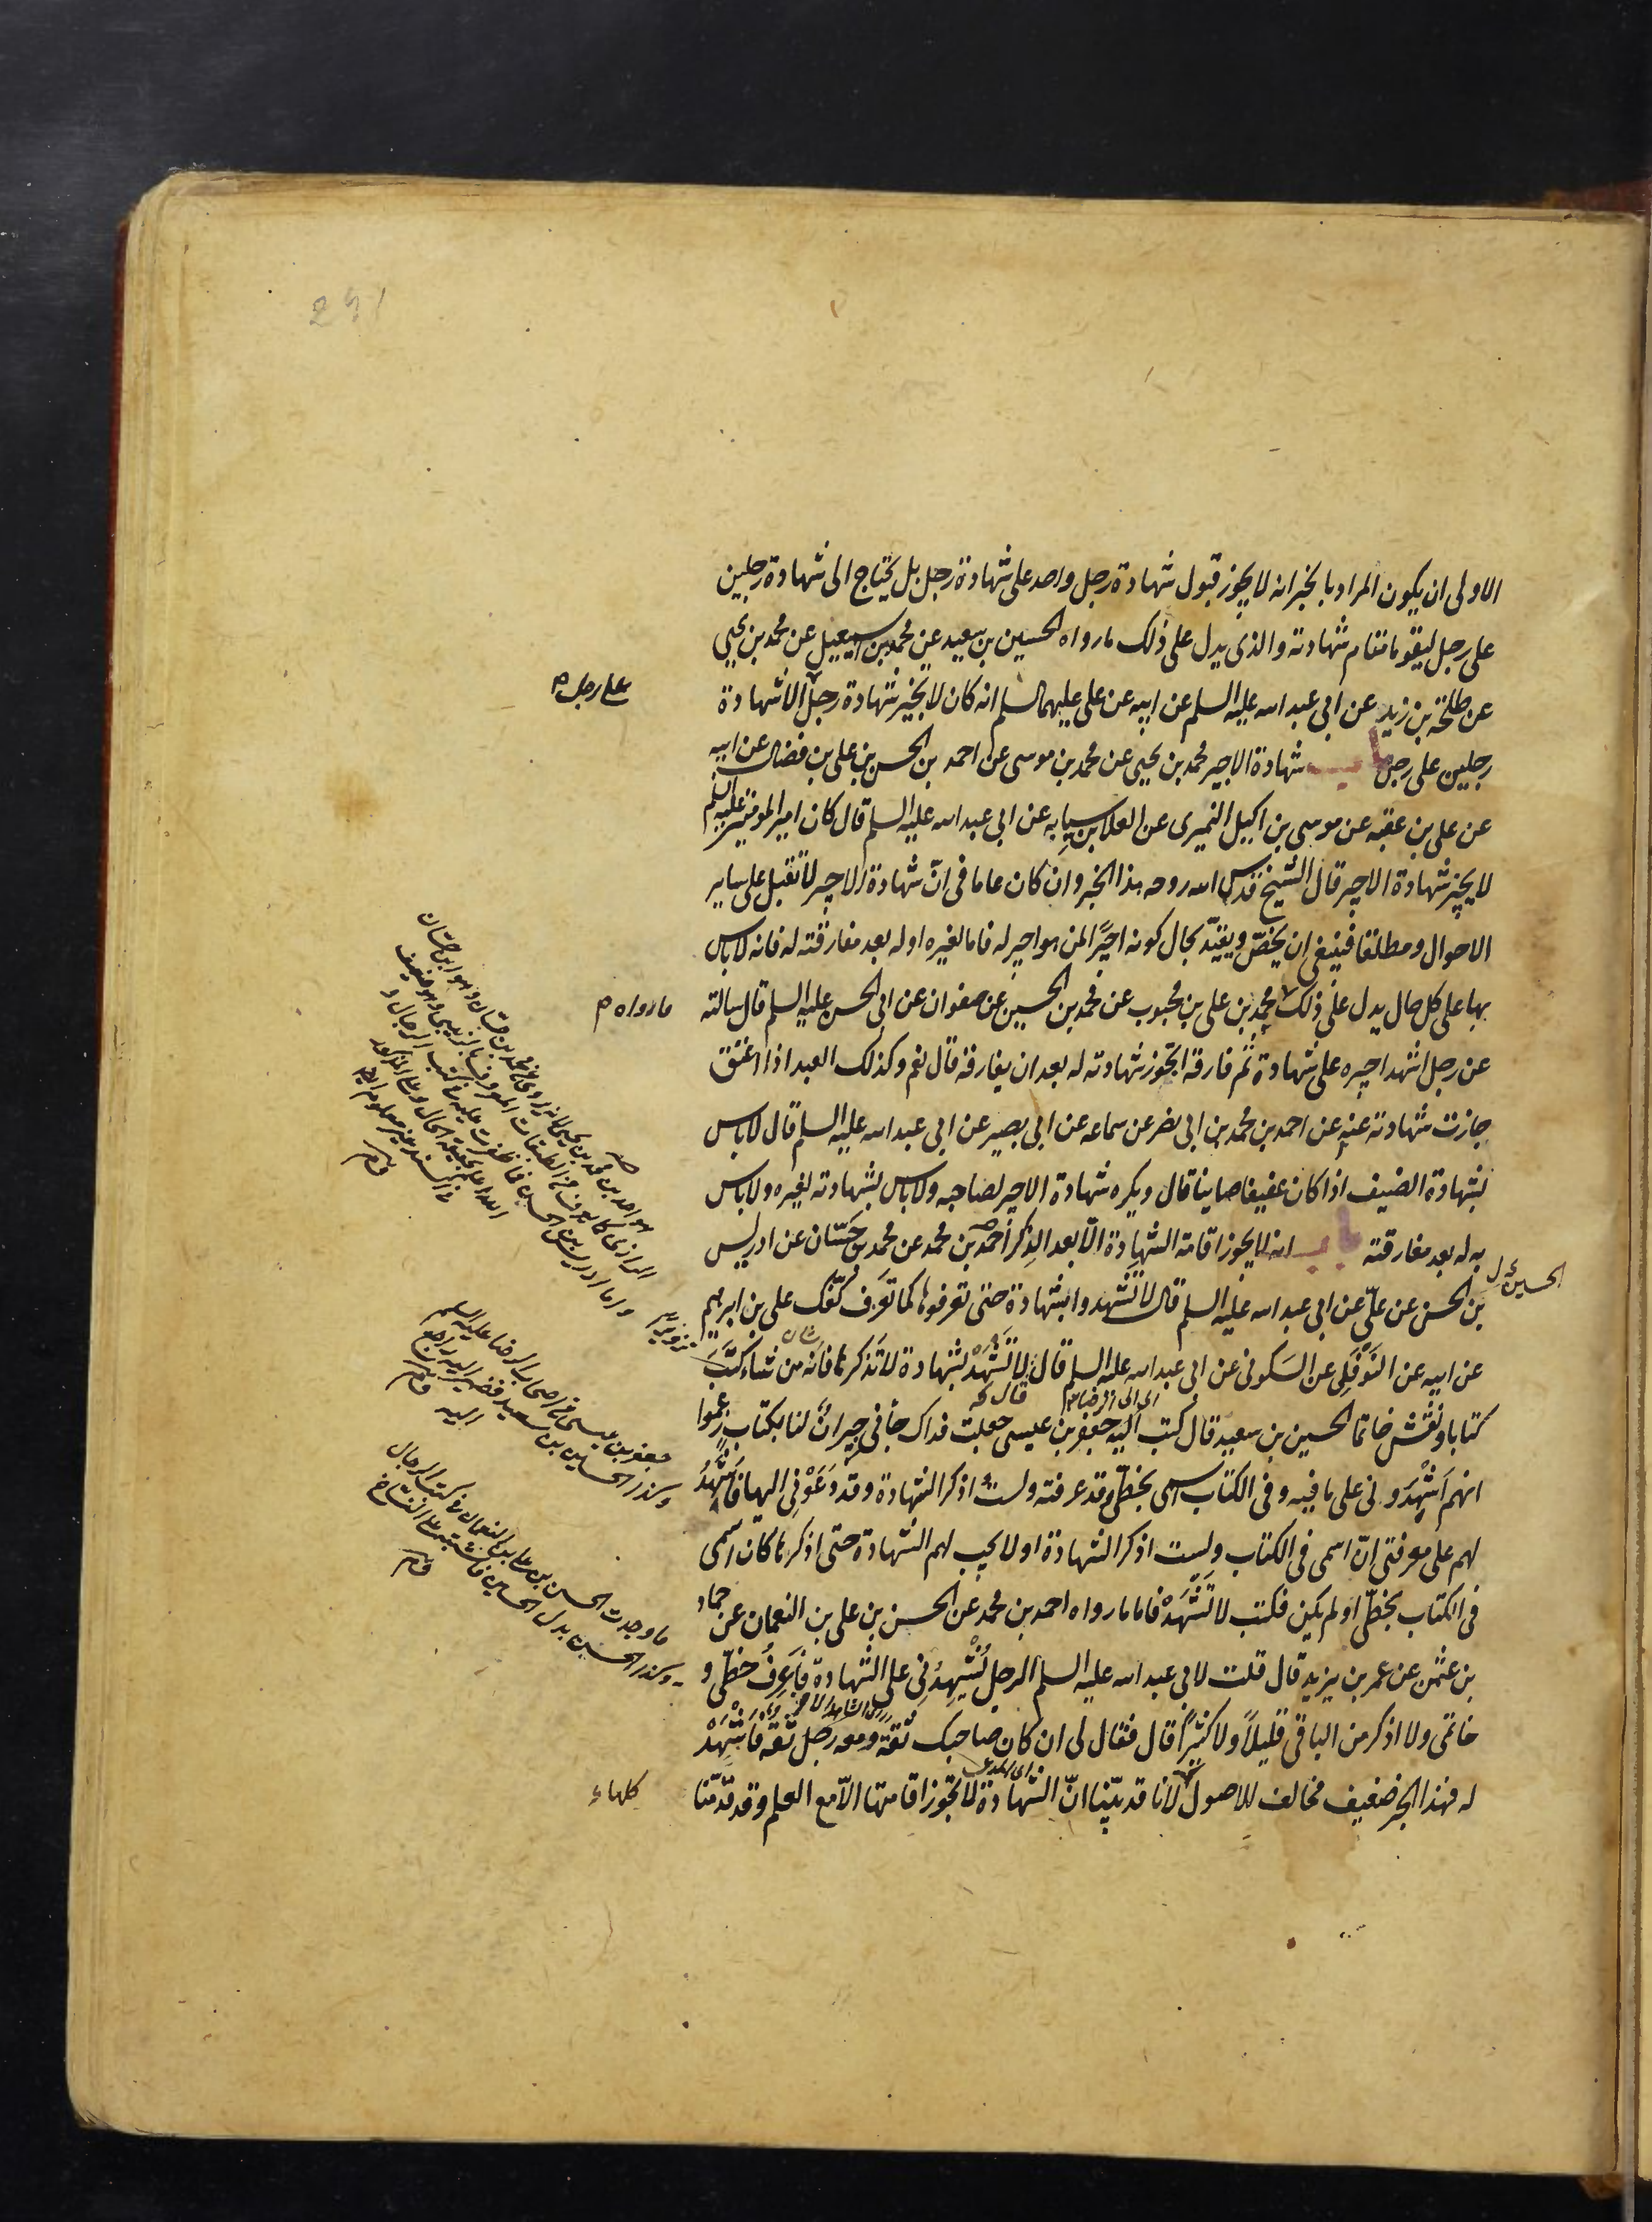 الاولى ان يكون المراد بالخبر انه لا يجوز قبول شهادة رجل واحد على شهادة رجل بل يحتاج الى شهادة رجلين
على رجل ليقوما مقام شهادته والذي يدل على ذلك ما رواه الحسين بن سعيد عن محمد بن اسمعيل عن محمد بن يحيى
عن طلحة بن زيد عن ابي عبد الله عليه السلم عن ابيه عن علي عليهما السلم انه كان لا يجيز شهادة رجل الا شهادة
على رجل م
رجلين على رجل باب شهادة الاجير محمد بن يحيى عن محمد بن موسى عن احمد بن الحسن بن علي بن فضال عن ابيه
عن علي بن عقبه عن موسى بن اكيل النميري عن العلا بن سيابه عن ابي عبد الله عليه السلم قال كان امير المومنين عليه السلم
لا يجيز شهادة الاجير قال الشيخ قدس الله روحه هذا الخبر وان كان عاما في انّ شهادة الاجير لا تقبل على ساير
الاحوال ومطلقا فينبغي ان يخصّ ويقيّد بحال كونه اجيرًا لمن هو اجير له فاما لغيره او له بعد مفارقته له فانه لا باس
بها على كل حال يدل على ذلك محمد بن علي بن محبوب عن محمد بن الحسين عن صفوان عن ابي الحسن عليه السلم قال سالته
ما رواه م
عن رجل اشهد اجيره على شهادة ثم فارقه اتجوز شهادته له بعد ان يفارقه قال نعم وكذلك العبد اذا اعتق
جازت شهادته عنه عن احمد بن محمد بن ابي نصر عن سماعه عن ابي بصير عن ابي عبد الله عليه السلم قال لا باس
بشهادة الضيف اذا كان عفيفا صاينا قال ويكره شهادة الاجير لصاحبه ولا باس بشهادته لغيره ولا باس
به له بعد مفارقته باب انه لا يجوز اقامة الشهادة الّا بعد الذكر احمد بن محمد عن محمد بن حسّان عن ادريس
الحسين
بن الحسن عن عليّ عن ابي عبد الله عليه السلم قال لا تشهدوا بشهادة حتى تعرفوها كما تعرف كفّك علي بن ابرهيم
عن ابيه عن النوفلي عن السكوني عن ابي عبد الله عليه السلم قال لا تشهد بشهادة لا تذكرها فانه من شاء كتب
كتابا ونقش خاتما الحسين بن سعيد قال كتب اليه جعفر بن عيسى جعلت فداك جاني جيران لنا بكتاب زعموا
انهم اشهدوني على ما فيه وفي الكتاب اسمي بخطّي وقد عرفته ولست اذكر الشهادة وقد دعوني اليها فاشهد
لهم على معرفتي انّ اسمي في الكتاب ولست اذكر الشهادة او لا يجب لهم الشهادة حتى اذكرها كان اسمي
في الكتاب بخطّي او لم يكن فكتب لا تشهد فاما ما رواه احمد بن محمد عن الحسن بن علي بن النعمان عن حماد
بن عثمن عن عمر بن يزيد قال قلت لابي عبد الله عليه السلم الرجل يُشهدني على الشهادة فاعرف خطّي و
خاتمي ولا اذكر من الباقي قليلاً ولا كثيرًا قال فقال لي ان كان صاحبك ثقة ومعه رجل ثقه فاشهد
له فهذا الخبر ضعيف مخالف للاصول لانا قد بيّنا انّ الشهادة لا تجوز اقامتها الّا مع العلم وقد قدّمنا
كلها
جعفر بن عيسى من اصحاب الرضا عليه السلم